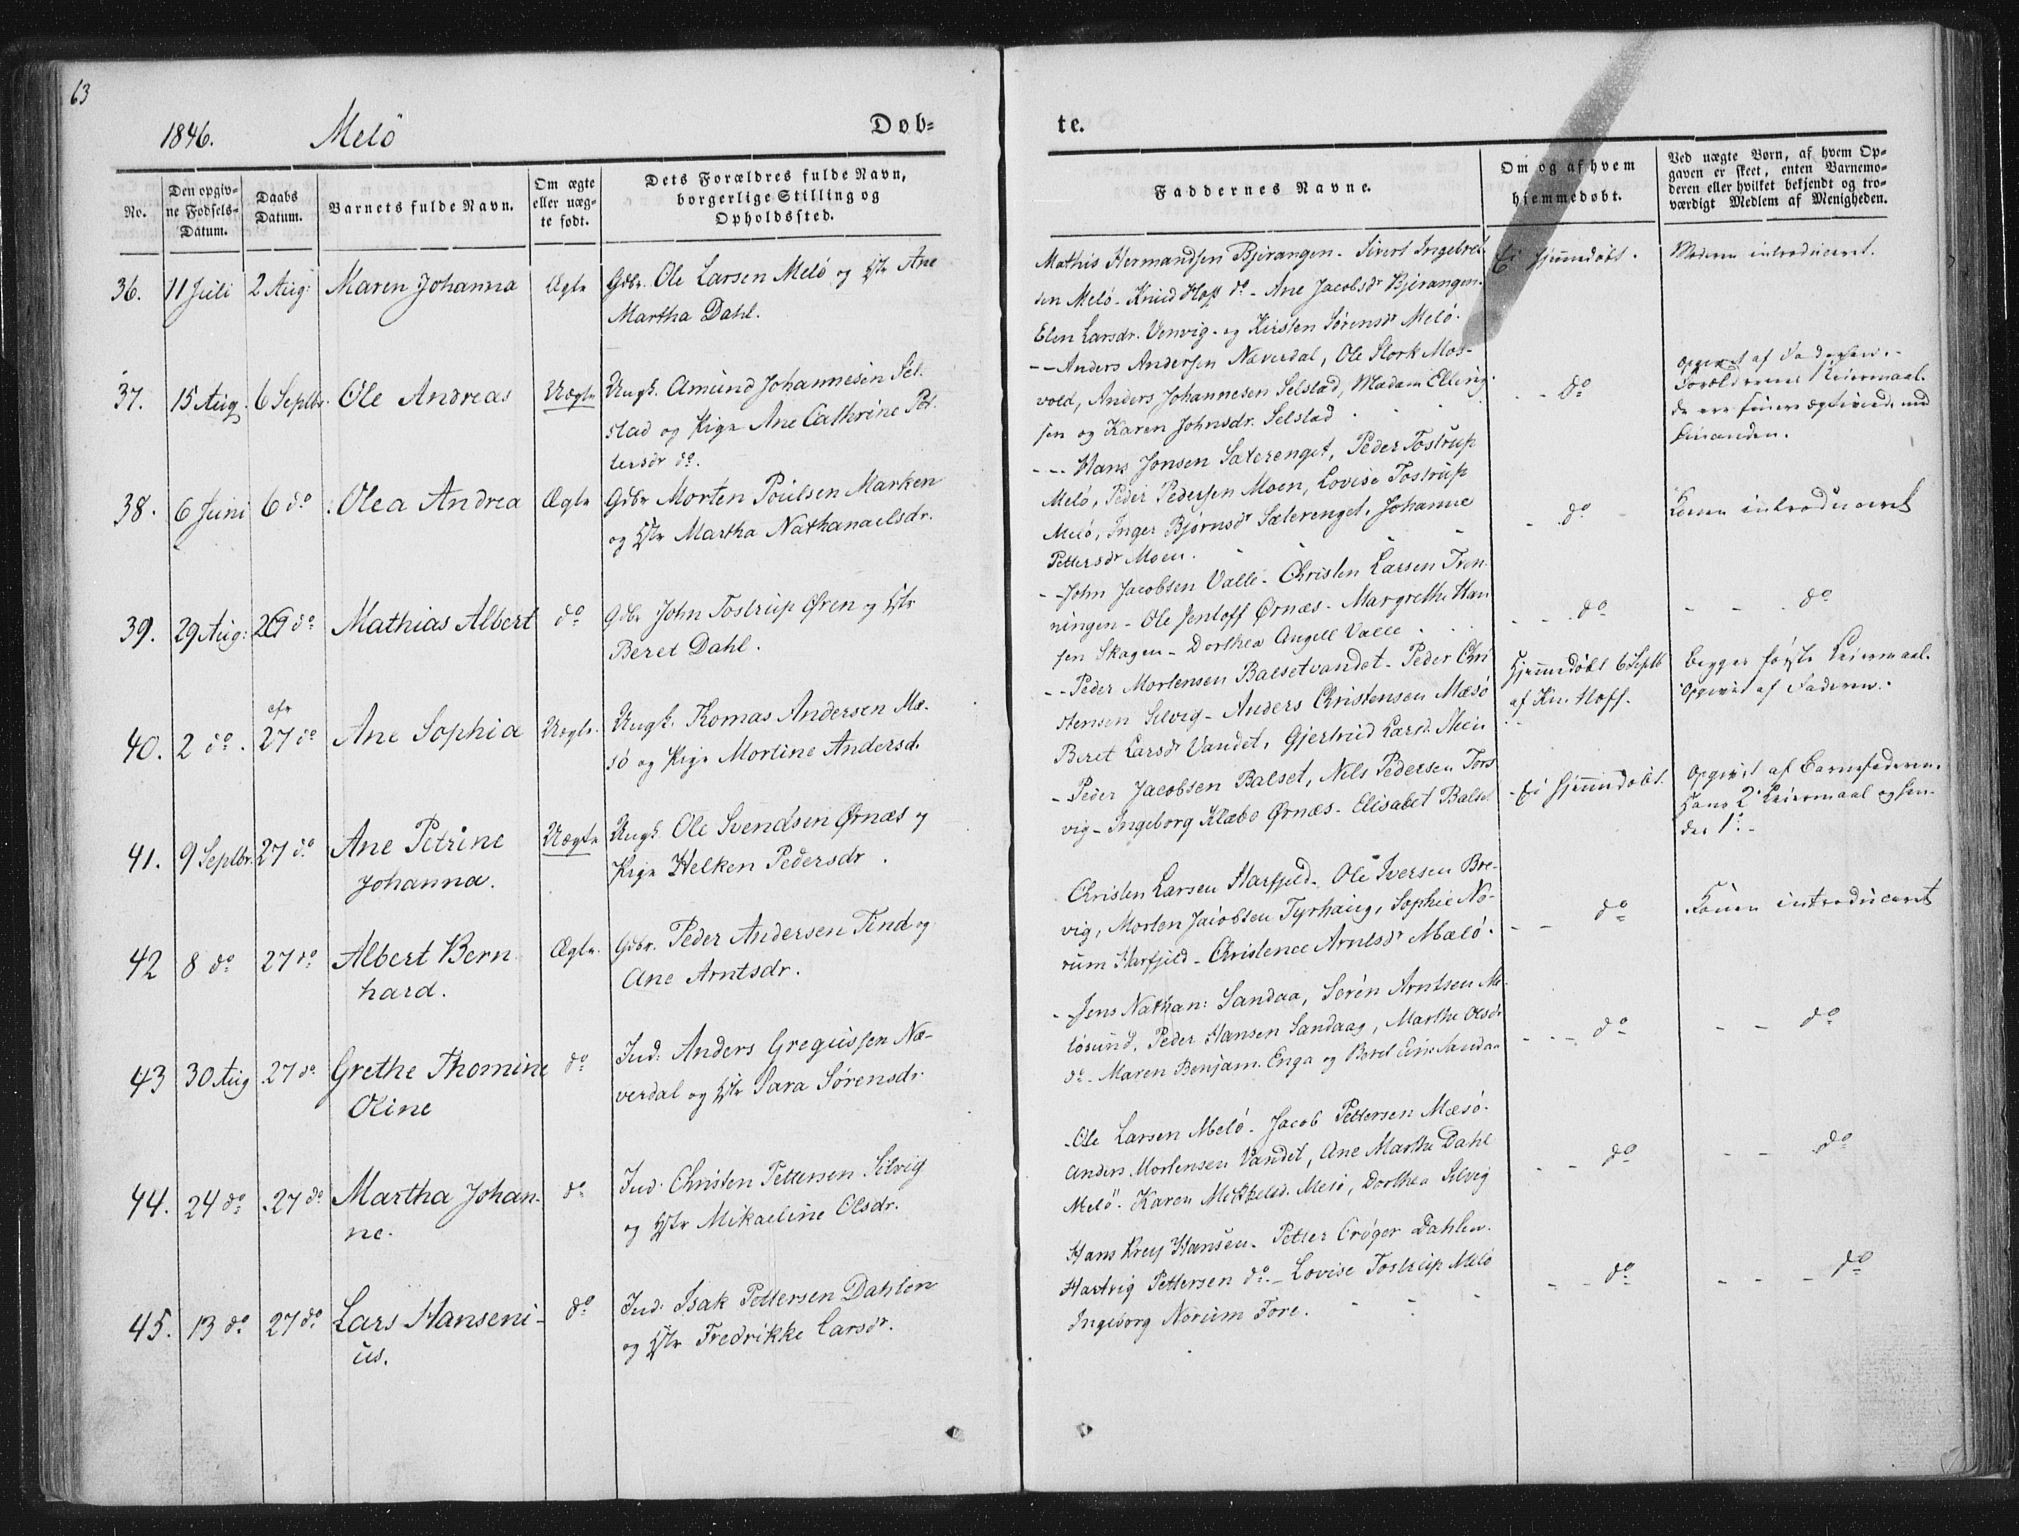 63
1846. Melö Döb-
No.
Den opgiv-
ne Fødsels-
Datum.
Daabs
Datum.
Barnets fulde Navn.
Om ægte
eller uæg-
te født.
Dets Forældres fulde Navn,
borgerlige Stilling og
Opholdssted.
36. 11 Juli 2 Aug: Maren Johanna Ægte Gdbr. Ole Larsen Melö og Ane
Martha Dahl.
37. 15 Aug. 6 Septbr. Ole Andreas Uægte Ungk. Amund Johannesen Sel-
stad og Pige Ane Cathrine Pet-
tersdr do.
38. 6 Juni 6 do Olea Andrea Ægte Gdbr Morten Poulsen Marken
og Martha Nathanaelsdr.
39. 29 Aug: do Mathias Albert do Gdbr John Tostrup Øren og
Beret Dahl.
40. 2 do. 27 do Ane Sophia Uægte. Ungk. Thomas Andersen Mæ-
sö og Pige Mortine Andersd.
41. 9 Septbr. 27 do Ane Petrine Uægte Ungk. Ole Svendsen Ørnæs og
Johanna. Pige Helken Pedersdr.
42 8 do 27 do Albert Bern Ægte. Gdbr. Peder Andersen Tind og
hard. Ane Arntsdr.
43 30 Aug 27 do Grethe Thomine do Ind: Anders Gregussen Næ-
Oline verdal og Sara Sørensdr.
44. 24 do 27 do Martha Johan- do Ind: Christen Pettersen Selvig
ne. og Mikaeline Olsdr.
45. 13 do 27 do Lars Hanseni- do Ind: Isak Pettersen Dahlen
us. og Fredrikke Larsdr.
te.
Faddernes Navne.
Om og af hvem
hjemmedøbt.
Ved uægte Børn, af hvem Op-
gaven er skeet, enten Barnemo-
deren eller hvilket bekjendt og tro-
værdigt Medlem af Menigheden.
Mathis Hermandsen Bjerangen - Sivert Ingebret- Ei hjemmedøbt. Moderen introduceret.
sen Melö - Knud Hoff do - Ane Jacobsdr Bjerangen.
Elen Larsdr. Venvig - og Kirsten Sörensdr Melö.
Anders Andersen Næverdal, Ole Stork Mos- Opgivet af Faderen.
vold, Anders Johannesen Selstad, Madam Elling- do Forældrenes Leiermaal.
sen og Karen Johnsdr. Selstad
Hans Jonsen Sæterenget, Peder Tostrup
Melö, Peder Pedersen Moen, Lovise Tostrup do Konen introduceret
Melö, Inger Bjørnsdr Sæterenget, Johanne
Pettersdr Moen.
John Jacobsen Valle - Christen Larsen Tren-
ningen - Ole Jentoff Ørnæs - Margrethe Han do do
sen Skagen - Dorthea Angell Valle
Peder Mortensen Balsetvandet - Peder Chri Hjemmedøbt 6 Septb Begges første Leiermaal.
stensen Selvig - Anders Christensen Mæsö af Kn. Hoff. Opgivet af Faderen.
Beret Larsdr Vandet, Gjertrud Larsd.
Peder Jacobsen Balset, Nils Pedersen Tors Ei hjemmedøbt. Opgivet af Barnefaderen.
vig - Ingeborg Klæbo Ørnæs - Elisabet Balset Hans 2 Leiermaal og hen-
des 1
Christen Larsen Harfjeld - Ole Iversen Bre-
vig, Morten Jacobsen Tyrhaug, Sophie No- do Konen introduceret
rum Harfjeld - Christence Arntsdr Mælö.
Jens Nathan: Sandaa, Sören Arntsen Me-
lösund, Peder Hansen Sandaag, Marthe Olsdr do do
do - Maren Benjam. Enga og Beret Sandaa
Ole Larsen Melö - Jacob Pettersen Mæsö.
Anders Mortensen Vandet, Ane Martha Dahl do do
Melö. Karen Mikkelsd. Mesö, Dorthea Selvig
Hans Krey Hansen - Petter Crøger Dahlen.
Hartvig Pettersen do - Lovise Tostrup Melö do do
Ingeborg Norum Fore.